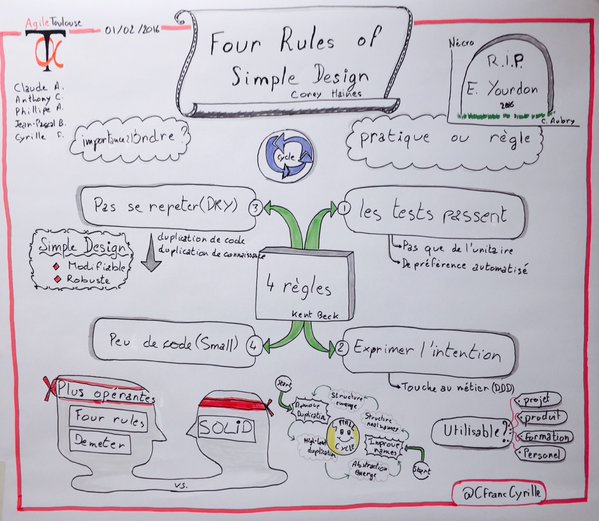 Agile Toulouse
01/02/2016
Claude A.
Anthony C.
Phillipe A.
Jean-Pascal B.
Cyrille F.
Four Rules of
Simple Design
Corey Haines
Nécro
R.I.P.
E. Yourdon
2016
C. Aubry
importance? Ordre?
Cycle
pratique ou règle
Pas se repeter (DRY) 3
duplication de code
duplication de connaissance
1 les tests passent
Pas que de l'unitaire
De préférence automatisé
Simple Design
Modifiable
Robuste
4 règles
Kent Beck
Peu de code (Small) 4
2 Exprimer l'intention
Touche au métier (DDD)
Plus opérantes
Four rules
Demeter
SOLID
vs.
Start
Remove
Duplication
Structure
emerge
Structure
Improve
names
Abstraction
emerge
duplication
CYCLE
Start
Utilisable?
projet
produit
formation
Personel
@CFrancCyrille